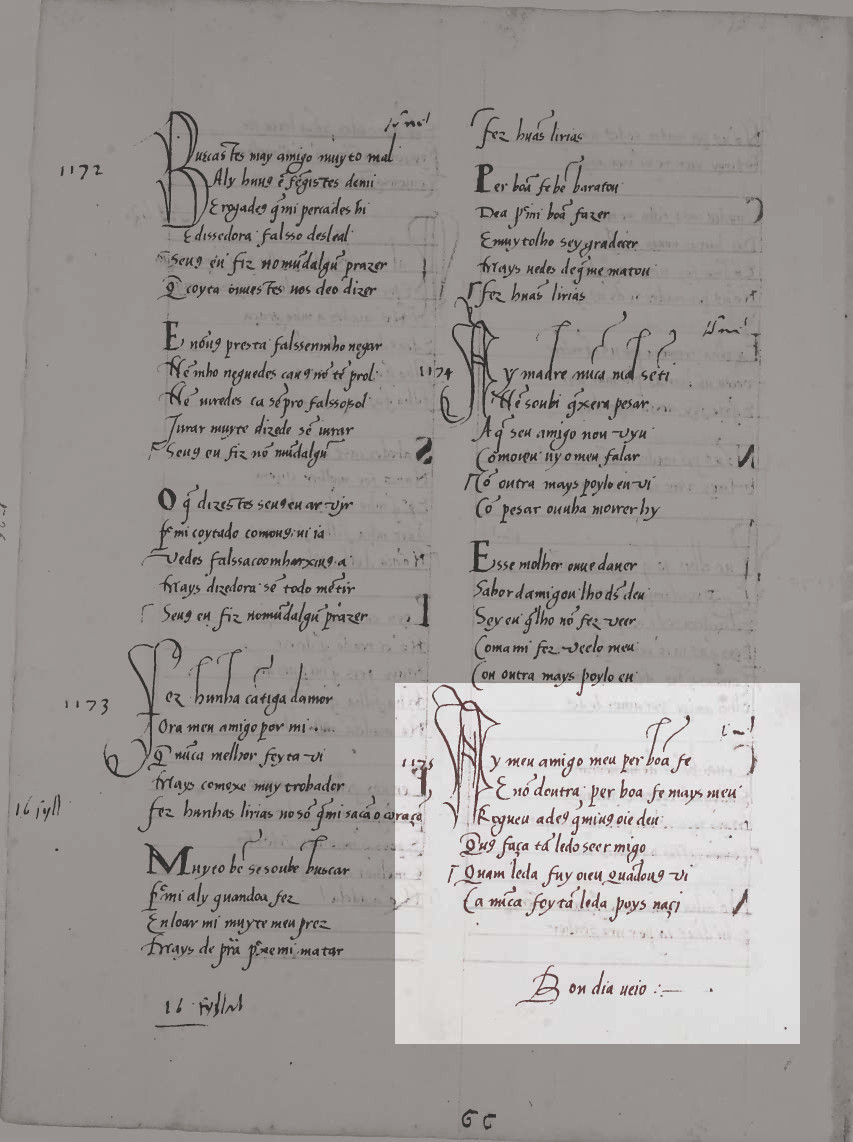 1172
Buscastes may amigo muyto mal
Aly huuꝯ ē fēgistes demi
E rogadeꝯ q̄mi percades hi
E dissedora falsso desleal
Seuꝯ eu fiz nomūdalgū prazer
Q̄ coyta ouuestes uos deo dizer
E nōuꝯ presta falssenmho negar
Nē mho neguedes cauꝯ nō tē prol
Nē iuredes ca sēpro falssosol
Jurar muyte dizede sē iurar
Seuꝯ eu fiz nō mūdalgū
O q̄ dizestes seuꝯ eu ar vyr
coytado comouꝯ ui ia
Vedes falssacoomhar
Mays dizedora sē todo mētir
Seuꝯ eu fiz nomūdalgū prazer
1173
Fez hunha cātiga damor
Ora meu amigo por mi
Q̄ nūca melhor feyta vi
Mays comexe muy trobador
Fez hunhas lirias no sō q̄mi saca o coraçō
Muyto bē se soube buscar
mi aly quandoa fez
En loar mi muyte meu prez
Mays de matar
16
Fez huās lirias
Per boā fe bē baratou
Dea boā fazer
E muytolho sey gradecer
Mays uedes de q̄ me matou
Fez huās lirias
1174
Ay madre nūca mal sēti
Nē soubi q̄xera pesar
A q̄ seu amigo non vyu
Comoieu uy o meu falar
Cō outra mays poylo eu vi
Cō pesar ouuha morrer hy
Esse molher ouue dauer
Sabor damigou lho ds̄ deu
Sey eu q̄ lho nō fez veer
Comami fez veelo meu
Con outra mays poylo eu
1175
Ay meu amigo meu per boa fe
E nō doutra per boa fe mays meu
Rogueu a deꝯ q̄ miuꝯ oie deu
Q̄uꝯ faça tā ledo seer migo
Quam leda fuy oieu quādouꝯ vi
Ca nūca foy tā leda poys naçi
Bon dia ueio
66